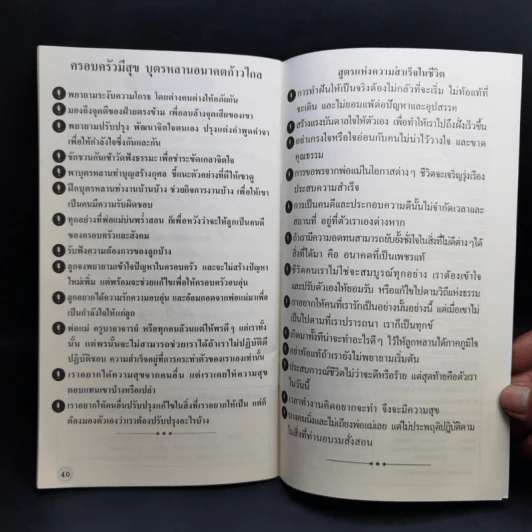 ครอบครัวมีสุข บุตรหลานอนาคตก้าวไกล
พยายามระงับความโกรธ โดยต่างคนต่างให้อภัยกัน
มองถึงจุดดีของฝ่ายตรงข้าม เพื่อลบล้างจุดเสียของเขา
พยายามปรับปรุง พัฒนาจิตใจตนเอง ปรุงแต่งคำพูดคำจา
เพื่อให้กำลังใจซึ่งกันและกัน
ชักชวนกันเข้าวัดฟังธรรมะ เพื่อชำระขัดเกลาจิตใจ
พาบุตรหลานทำบุญสร้างกุศล ชี้แนะตัวอย่างที่ดีให้เขาดู
ฝึกบุตรหลานทำงานบ้านบ้าง ช่วยกิจการงานบ้าง เพื่อให้เขา
เป็นคนมีความรับผิดชอบ
ทุกอย่างที่พ่อแม่บ่นพร่ำสอน ก็เพื่อหวังว่าจะให้ลูกเป็นคนดี
ของครอบครัวและสังคม
รับฟังความต้องการของลูกบ้าง
ลูกจงพยายามเข้าใจปัญหาในครอบครัว และจะไม่สร้างปัญหา
ใหม่เพิ่ม แต่พร้อมจะช่วยแก้ไขเพื่อให้ครอบครัวอบอุ่น
ลูกอยากได้ความรักความอบอุ่น และอ้อมกอดจากพ่อแม่มาเพื่อ
เป็นกำลังใจให้แก่ลูก
พ่อแม่ ครูบาอาจารย์ หรือทุกคนล้วนแต่ให้พรดีๆ แก่เราทั้ง
นั้น แต่พรนั้นจะไม่สามารถช่วยเราได้ถ้าเราไม่ปฏิบัติดี
ปฏิบัติชอบ ความสำเร็จอยู่ที่การกระทำตัวของเราเองเท่านั้น
เราอยากได้ความสุขจากคนอื่น แต่เราเคยให้ความสุข
ตอบแทนเขาบ้างหรือเปล่า
เราอยากให้คนอื่นปรับปรุงแก้ไขในสิ่งที่เราอยากให้เป็น แต่ก็
ต้องมองตัวเองว่าเราต้องปรับปรุงอะไรบ้าง
40
สูตรแห่งความสำเร็จในชีวิต
การทำฝันให้เป็นจริงต้องไม่กลัวที่จะเริ่ม ไม่ท้อแท้ที่
จะเดิน และไม่ยอมแพ้ต่อปัญหาและอุปสรรค
สร้างแรงบันดาลใจให้ตัวเอง เพื่อทำให้เราไปถึงฝั่งเร็วขึ้น
อย่าเกรงใจหรือใจอ่อนกับคนไม่น่าไว้วางใจ และขาด
คุณธรรม
การขอพรจากพ่อแม่ในโอกาสต่างๆ ชีวิตจะเจริญรุ่งเรือง
ประสบความสำเร็จ
การเป็นคนดีและประกอบความดีนั้นไม่จำกัดเวลาและ
สถานที่ อยู่ที่ตัวเราเองต่างหาก
ถ้าเรามีความอดทนสามารถยับยั้งชั่งใจในสิ่งที่ไม่ดีต่างๆได้
สิ่งที่ได้มา คือ อนาคตที่เป็นเพชรแท้
ชีวิตคนเราไม่ใช่จะสมบูรณ์ทุกอย่าง เราต้องเข้าใจ
และปรับตัวเองให้ยอมรับ หรือแก้ไขไปตามวิถีแห่งธรรม
เราอยากให้คนที่เรารักเป็นอย่างนั้นอย่างนี้ แต่เมื่อเขาไม่
เป็นไปตามที่เราปรารถนา เราก็เป็นทุกข์
เกิดมาทั้งทีน่าจะทำอะไรดีๆ ไว้ให้ลูกหลานได้ภาคภูมิใจ
อย่าท้อแท้ถ้าเรายังไม่พยายามเริ่มต้น
ประสบการณ์ชีวิตไม่ว่าจะดีหรือร้าย แต่สุดท้ายคือตัวเรา
ในวันนี้
เวลาทำงานคิดอยากจะทำ จึงจะมีความสุข
บางคนนิ่งและไม่เถียงพ่อแม่เลย แต่ไม่ประพฤติปฏิบัติตาม
ในสิ่งที่ท่านอบรมสั่งสอน